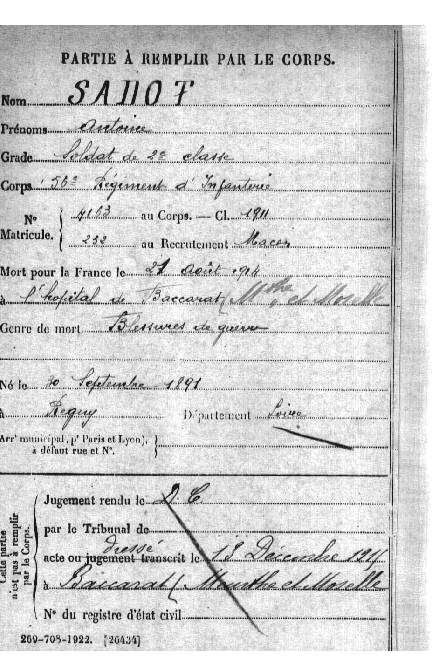 PARTIE À REMPLIR PAR LE CORPS.
Nom SADOT
Prénoms Antoine
Grade Soldat de 2e classe
Corps 56e Régiment d'Infanterie
N° Matricule. { au Corps. — Cl. 1911
232 au Recrutement Macon
Mort pour la France le 21 Août 1914
à l'hopital de Baccarat (Mthe et Moselle
Genre de mort Blessures de guerre
Né le 20 Septembre 1891
à Regny Département Loire
Arr' municipal, p' Paris et Lyon), à défaut rue et N°. }
Cette partie n'est pas à remplir par le Corps.
Jugement rendu le D C
par le Tribunal de
acte ou jugement dressé transcrit le 13 Décembre 1914
à Baccarat (Meurthe et Moselle
N° du registre d'état civil
269-708-1922. [26434]